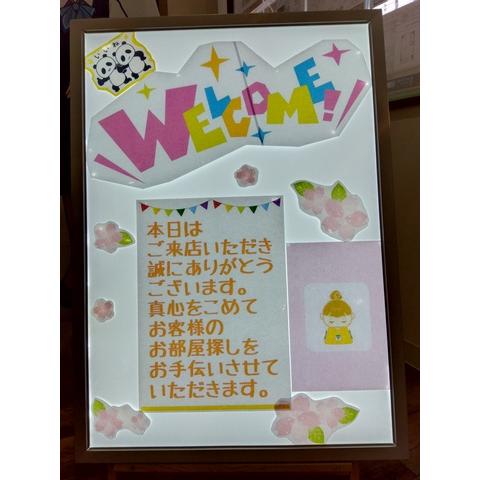 いいね
WELCOME!!
本日は
ご来店いただき
誠にありがとう
ございます。
真心をこめて
お客様の
お部屋探しを
お手伝いさせて
いただきます。